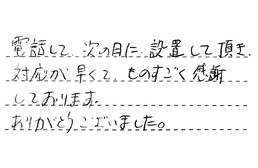 電話して、次の日に、設置して頂き、
対応が早くて、ものすごく感謝
しております。
ありがとうございました。